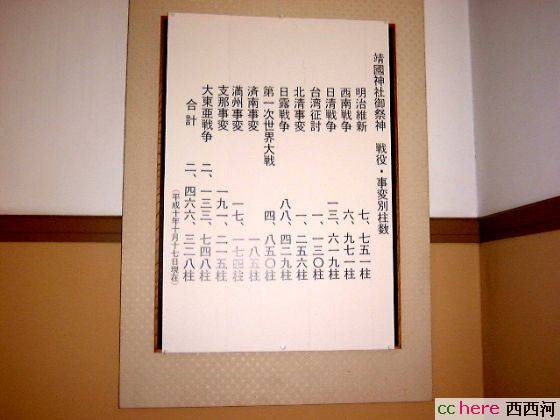 靖國神社御祭神　戦役・事変別柱数
明治維新　七、七五一柱
西南戦争　六、九七一柱
日清戦争　一三、六一九柱
台湾征討　一、一三〇柱
北清事変　一、二五六柱
日露戦争　八八、四二九柱
第一次世界大戦　四、八五〇柱
済南事変　一八五柱
満州事変　一七、一七四柱
支那事変　一九一、二一五柱
大東亜戦争　二、一三三、七四八柱
合計　二、四六六、三二八柱
（平成十年十月十七日現在）
cchere 西西河